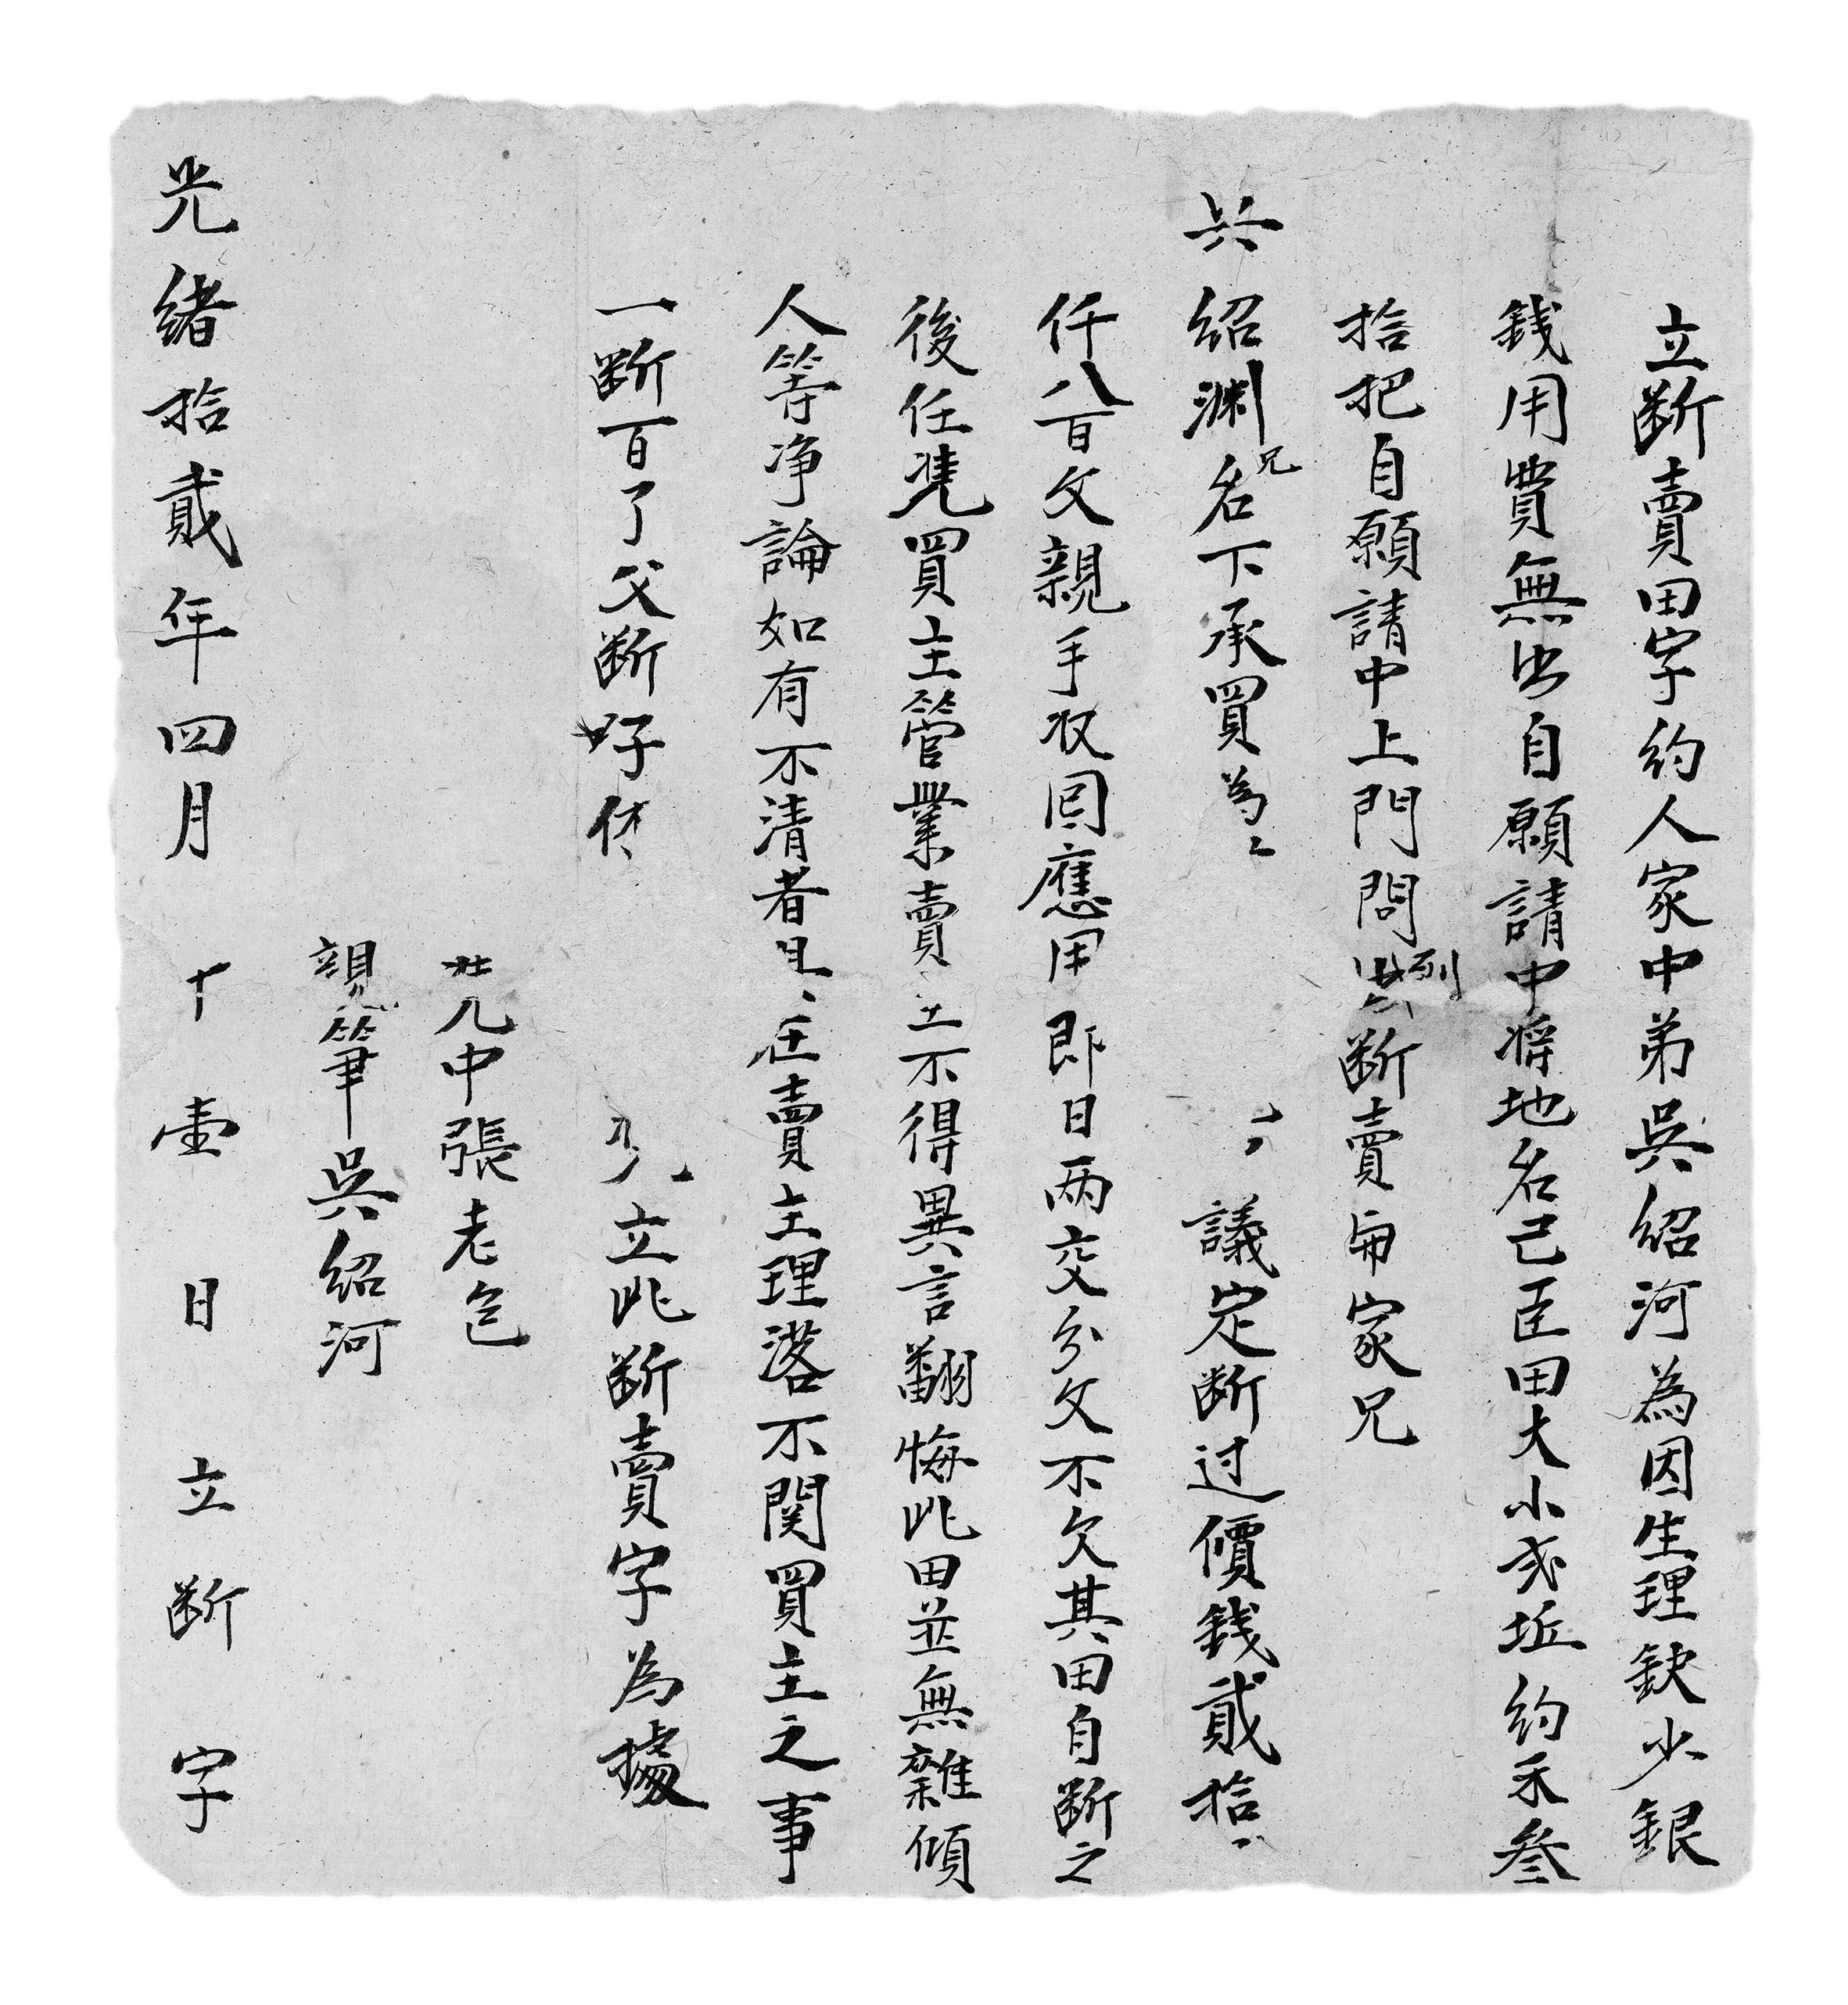 立断賣田字約人家中弟吳紹河為因生理缺少銀
錢用費無出自願請中將地名己臣田大小弍坵約禾叄
拾把自願請中上門問到断賣與家兄
紹渊兄名下承買為 議定断过價錢貳拾
仟八百文親手収囘應用即日两交分文不欠其田自断之
後任凴買主管業賣主不得異言翻悔此田並無雜傾
人等净論如有不清者 在賣主理落不関買主之事
一断百了父断子休 立此断賣字為據
中張老
親筆吳紹河
光緒拾貳年四月十壹日立断字